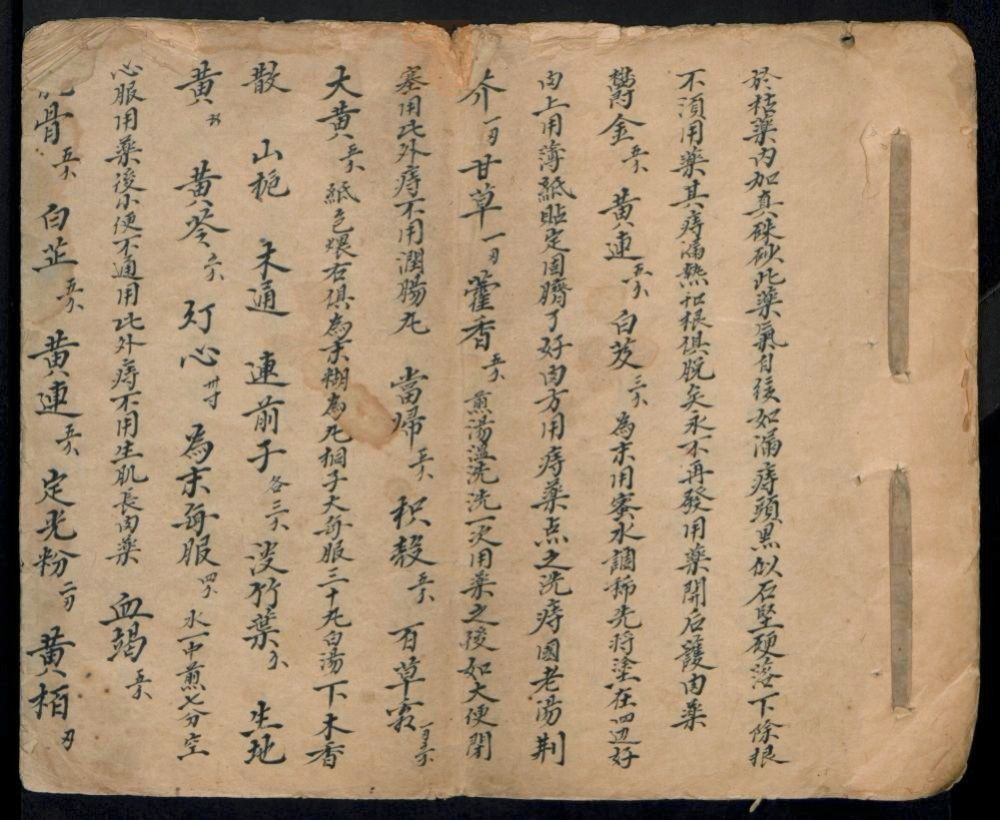 於枯藥內加真硃砂此藥氣自後如滿痔頭黑似石堅硬落下除根
不須用藥其痔滿熱和根俱脫矣永不再發用藥開后護肉藥
鬱金五分 黃連五分 白芨三分 為末用蜜水調稀先將塗在四边好
肉上用薄紙貼定固臍了好肉方用痔藥点之洗痔國老湯荆
介一刄甘草一刄藿香五分 煎湯溫洗洗一次用藥之後如大便閉
塞用此外痔不用潤腸丸 當歸五分 枳殼五分 百草霜
大黃五分 紙包煨右俱為末糊為丸桐子大每服三十丸白湯下木香
散 山梔 木通 連前子各三分 淡竹葉 生地
黃 黃芩 灯心 為末每服四分 水一中煎七分空
心服用藥後小便不通用此外痔不用生肌長肉藥 血竭五分
骨五分 白芷五分 黃連五分 定光粉 黃栢刄